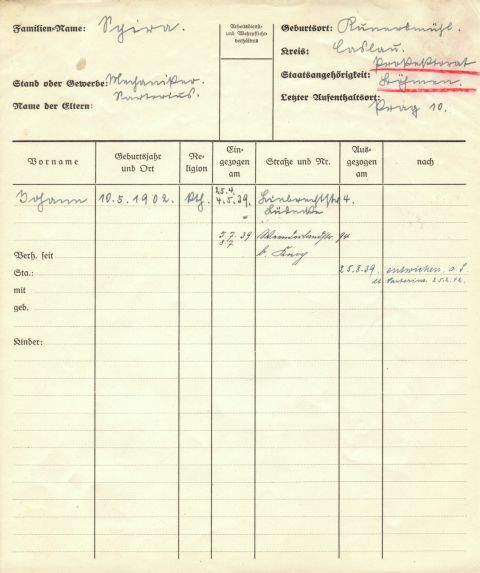 Familien-Name: Syira.
Arbeitsdienst- und Wehrpflichtverhältnis
Geburtsort:
Kreis: Caslau.
Stand oder Gewerbe: Mechaniker.
Sartorius.
Staatsangehörigkeit: Protektorat
Böhmen.
Name der Eltern:
Letzter Aufenthaltsort: Prag 10.
Vorname Geburtsjahr und Ort Religion Eingezogen am Straße und Nr. Ausgezogen am nach
25.4.
Johann 10.5.1902. Kth. 4.5.39. 4.
" Lübecke
5.7.39 94
8.7 b.
Verh. seit
Sta.: 25.8.39. entwichen
mit Sartorius 25.2.42.
geb.
Kinder: